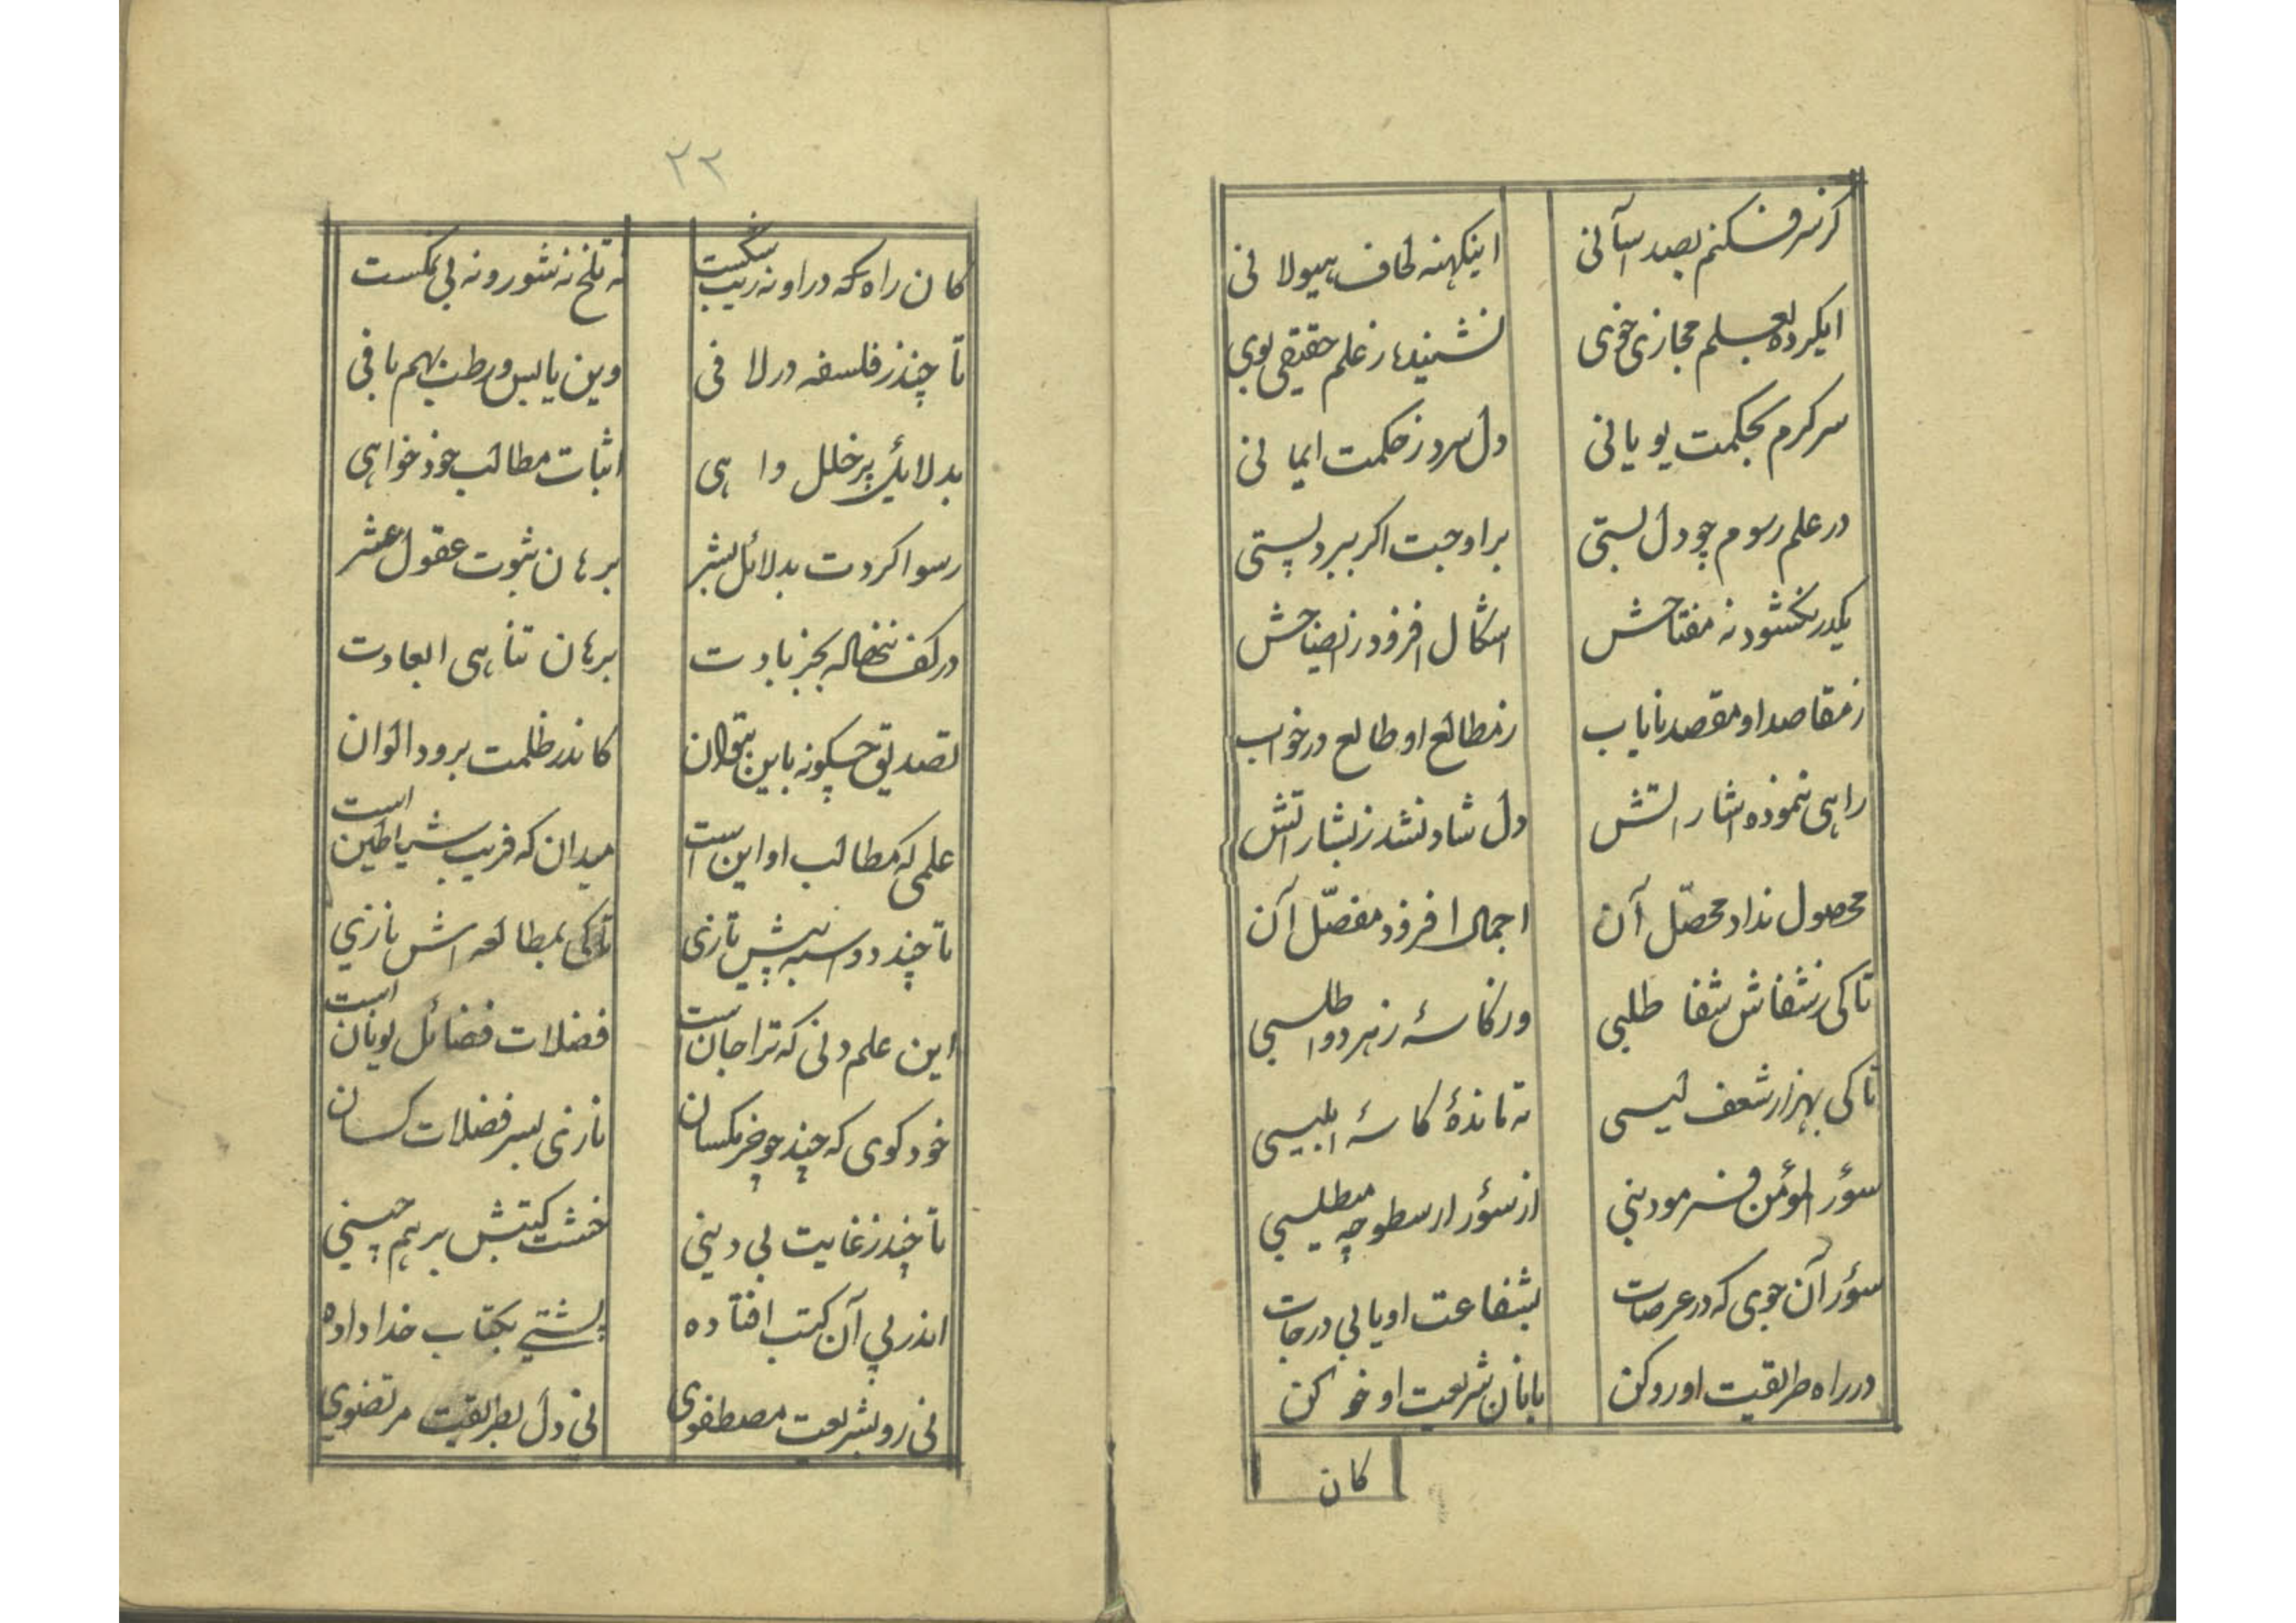 کز سر فکنم بصد آسانی اینکهنه لحاف هیولانی
ایکرده بعلم مجازی خوی نشنیده ز علم حقیقی بوی
سرکرم بحکمت یونانی دل سرد ز حکمت ایمانی
در علم رسوم چو دل بستی بر اوجت اکر ببرد پستی
یکدر نکشود ز مفتاحش اشکال افزود ز ایضاحش
ز مقاصد او مقصد نایاب ز مطالع او طالع در خواب
راهی ننموده اشاراتش دل شاد نشد ز بشاراتش
محصول نداد محصّل آن اجمال افزود مفصّل آن
تا کی ز شفاش شفا طلبی وز کاسهٔ زهر دوا طلبی
تا کی بهزار شعف لیسی ته ماندهٔ کاسهٔ ابلیسی
سؤر المؤمن فرمود نبی از سؤر ارسطو چه میطلبی
سؤر آن جوی که در عرصات بشفاعت او یابی درجات
در راه طریقیت او رو کن با نان شریعت او خو کن
کان
۲۲
کان راه که در او نه ریب شکست نه تلخ نه شور و نه بی نمکست
تا چند ز فلسفه در لافی وین یابس و رطب بهم بافی
بدلایل پر خلل واهی اثبات مطالب خود خواهی
رسوا کردت بدلائل بشر برهان ثبوت عقول عشر
در کف ننهاله بجز بادت برهان تناهی ابعادت
تصدیق چکونه باین بتوان کاندر ظلمت برود الوان
علمی که مطالب او این است میدان که فریب شیاطین است
تا چند دو اسبه پیش تازی تا کی بمطالعه اش نازی
این علم دنی که ترا جان است فضلات فضائل یونان است
خود کوی که چند چو خرمکسان نازی بسر فضلات کسان
تا چند ز غایت بی دینی خشت کتبش بر هم چینی
اندر پی آن کتب افتاده پشتی بکتاب خدا داده
نی رو بشریعت مصطفوی نی دل بطریقیت مرتضوی